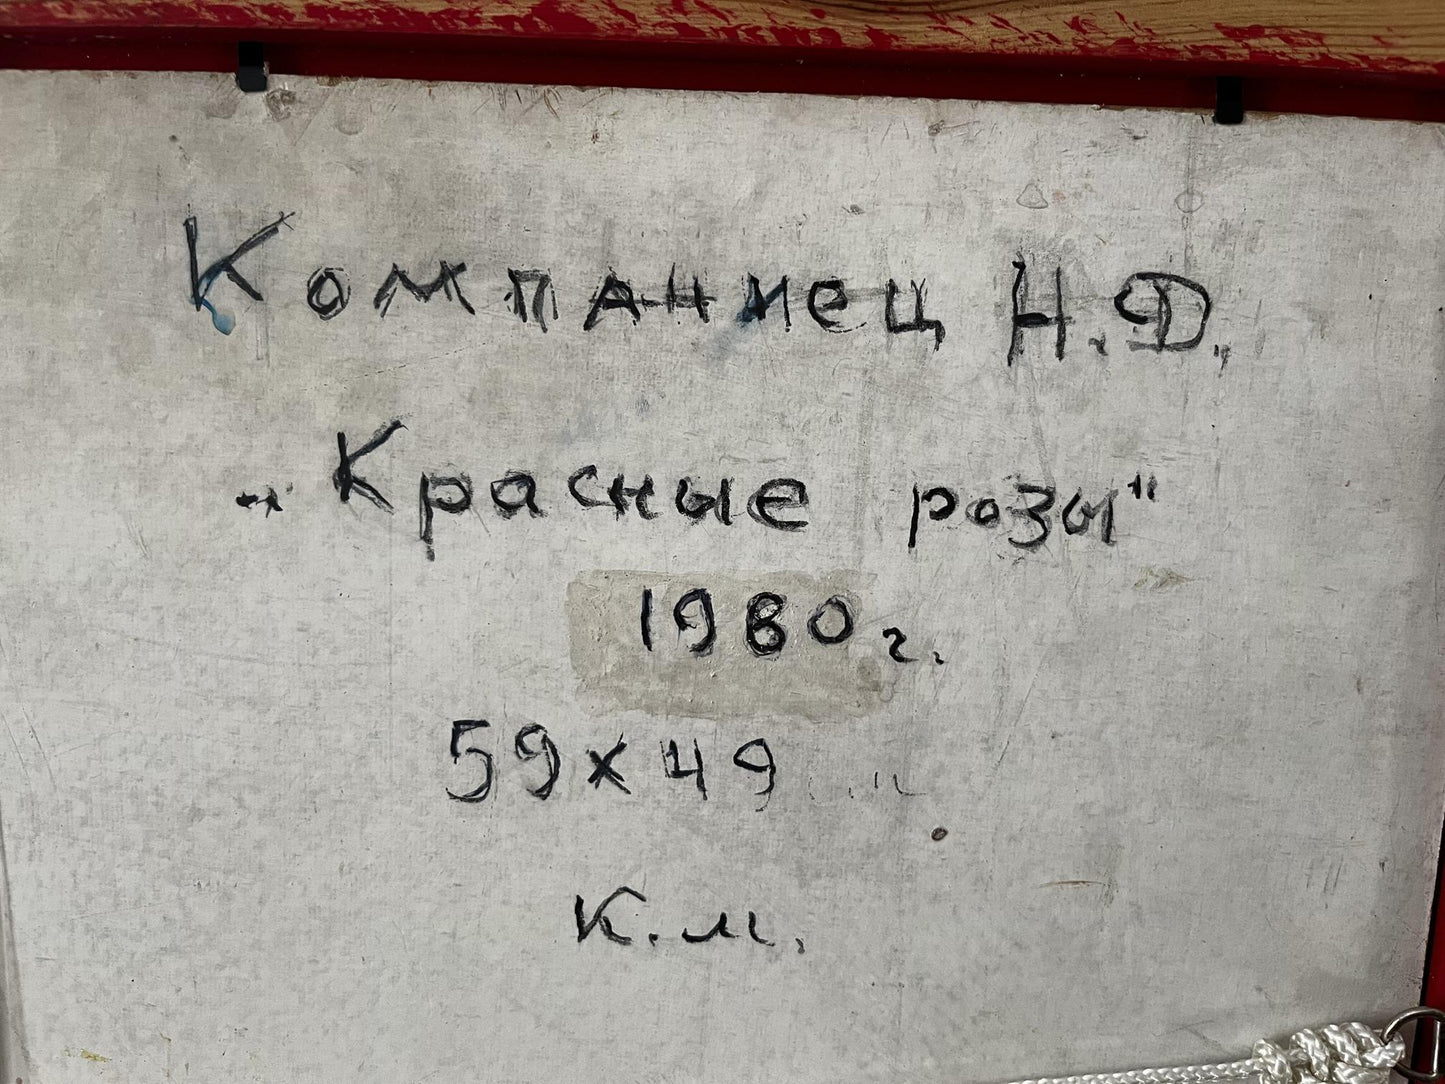 Компаниец Н.Д.,
"Красные розы"
1980 г.
59x49
к.м.